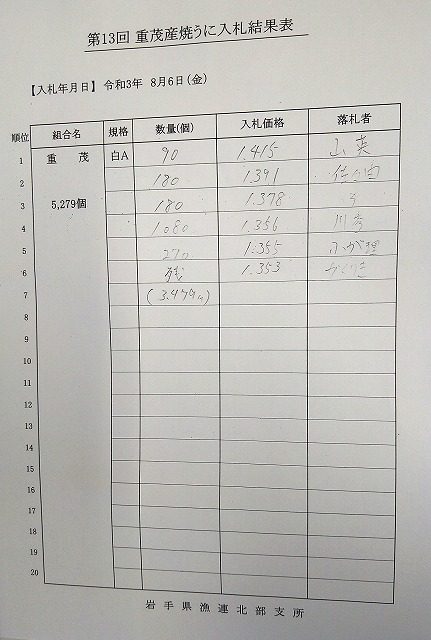 第13回 重茂産焼うに入札結果表
【入札年月日】 令和3年 8月6日(金)
順位 組合名 規格 数量(個) 入札価格 落札者
1 重 茂 白A 90 1.415 山英
2 180 1.391
3 5,279個 180 1.378 〃
4 1.080 1.356
5 270 1.355
6 残 1.353
7 (3.479
8
9
10
11
12
13
14
15
16
17
18
19
20
岩手県漁連北部支所